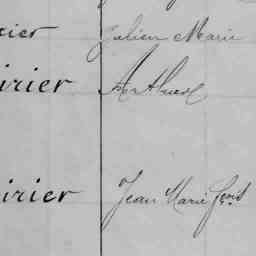 cier Julien Marie
irier Arthur
irier Jean Marie